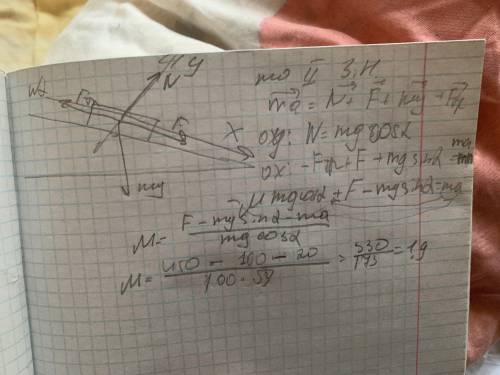 y
N
F
X
mg
по II З.Н.
ma = N + F + mg + Fтр
oy: N = mg cosα
ox: -Fтр + F + mg sinα = ma
μ mg cosα + F - mg sinα = ma
M = F - mg sinα - ma
mg cosα
M = 450 - 100 - 20
= 1,9